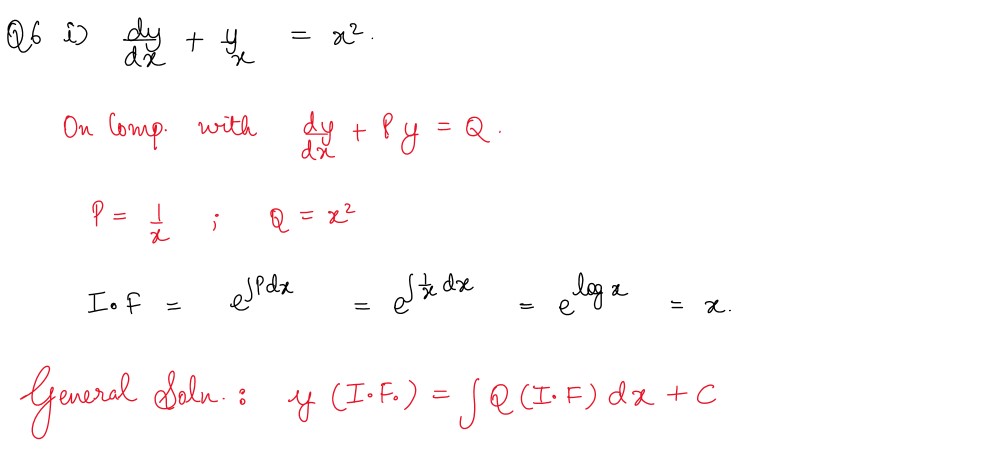 Q6 i) dy/dx + y/x = x².
On Comp. with dy/dx + Py = Q.
P = 1/x ; Q = x²
I.F = e^∫Pdx = e^∫1/x dx = e^log x = x.
General Soln. : y (I.F.) = ∫Q (I.F) dx + C